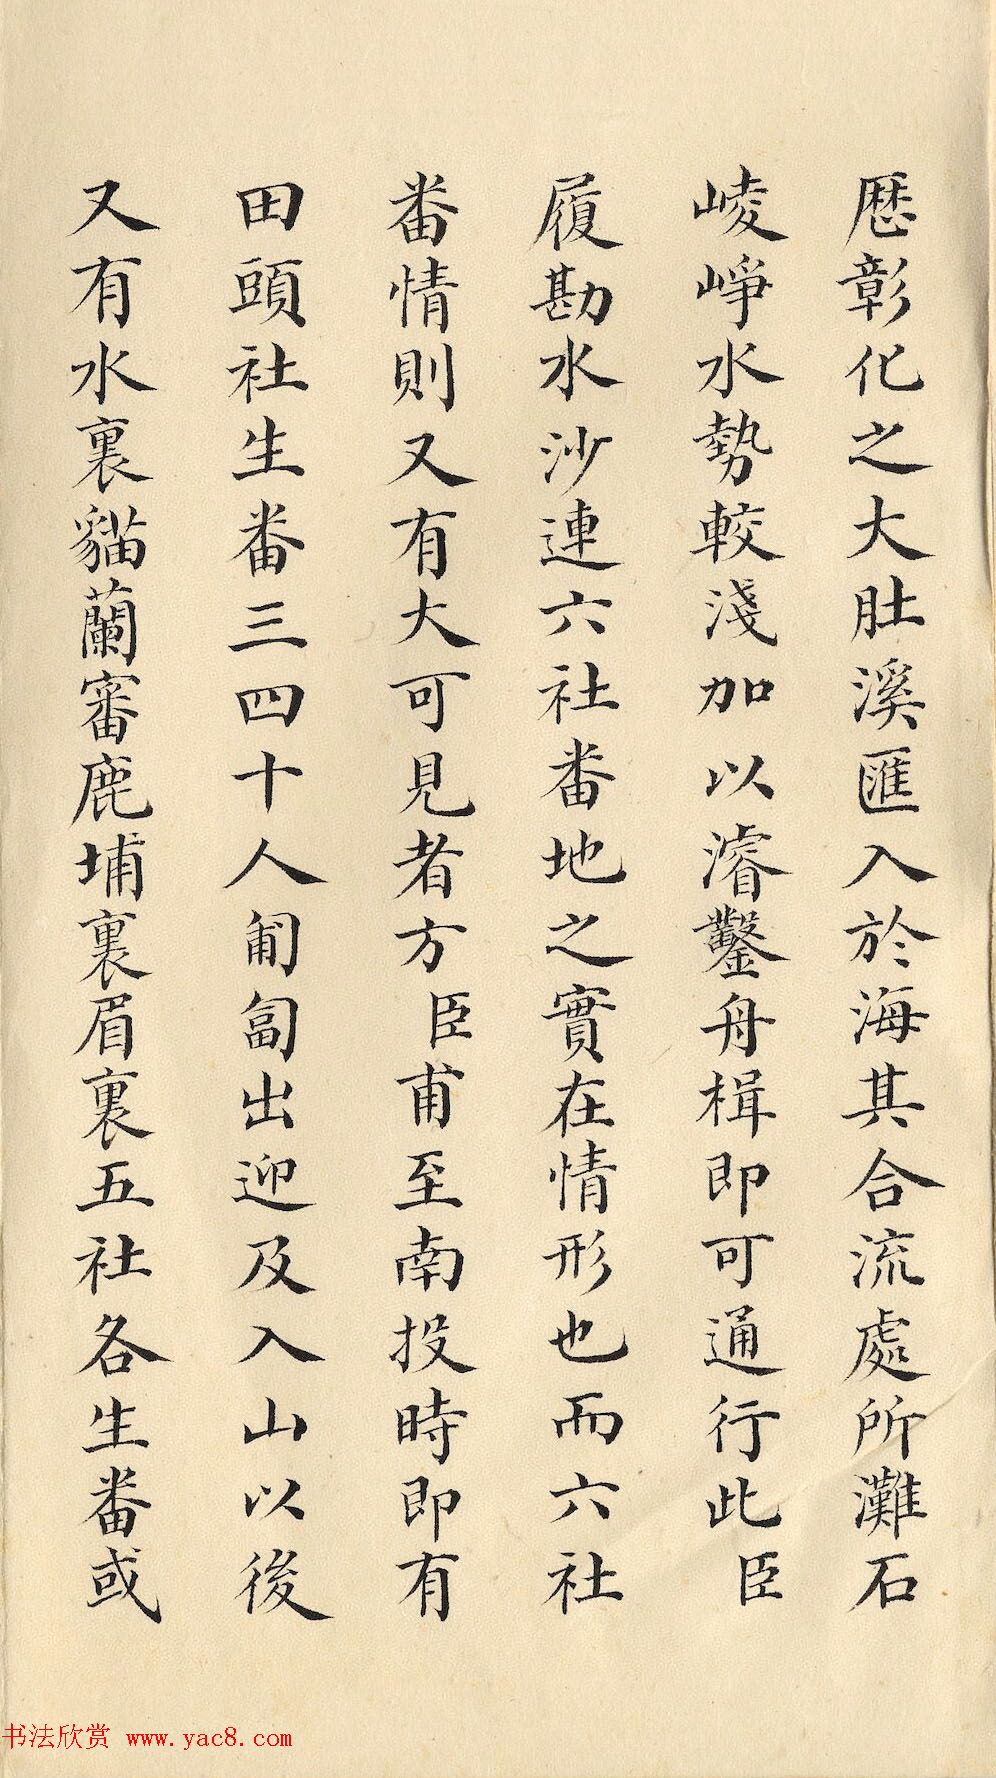 歷彰化之大肚溪匯入於海其合流處所灘石
崚崢水勢較淺加以濬鑿舟楫即可通行此臣
履勘水沙連六社番地之實在情形也而六社
番情則又有大可見者方臣甫至南投時即有
田頭社生番三四十人匍匐出迎及入山以後
又有水裏貓蘭審鹿埔裏眉裏五社各生番或
书法欣赏 www.yac8.com